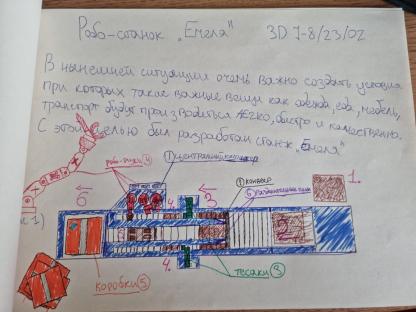 Робо-станок „Емеля" 3D 7-8/23/02
В нынешней ситуации очень важно создать условия
при которых такие важные вещи как одежда, еда, мебель,
транспорт будут производиться легко, быстро и качественно.
С этой целью был разработан станок „Емеля"
① центральный
робо-руки ④
① конвейр
1.
6
3
2
3
4.
4.
тесаки ③
коробки ⑤